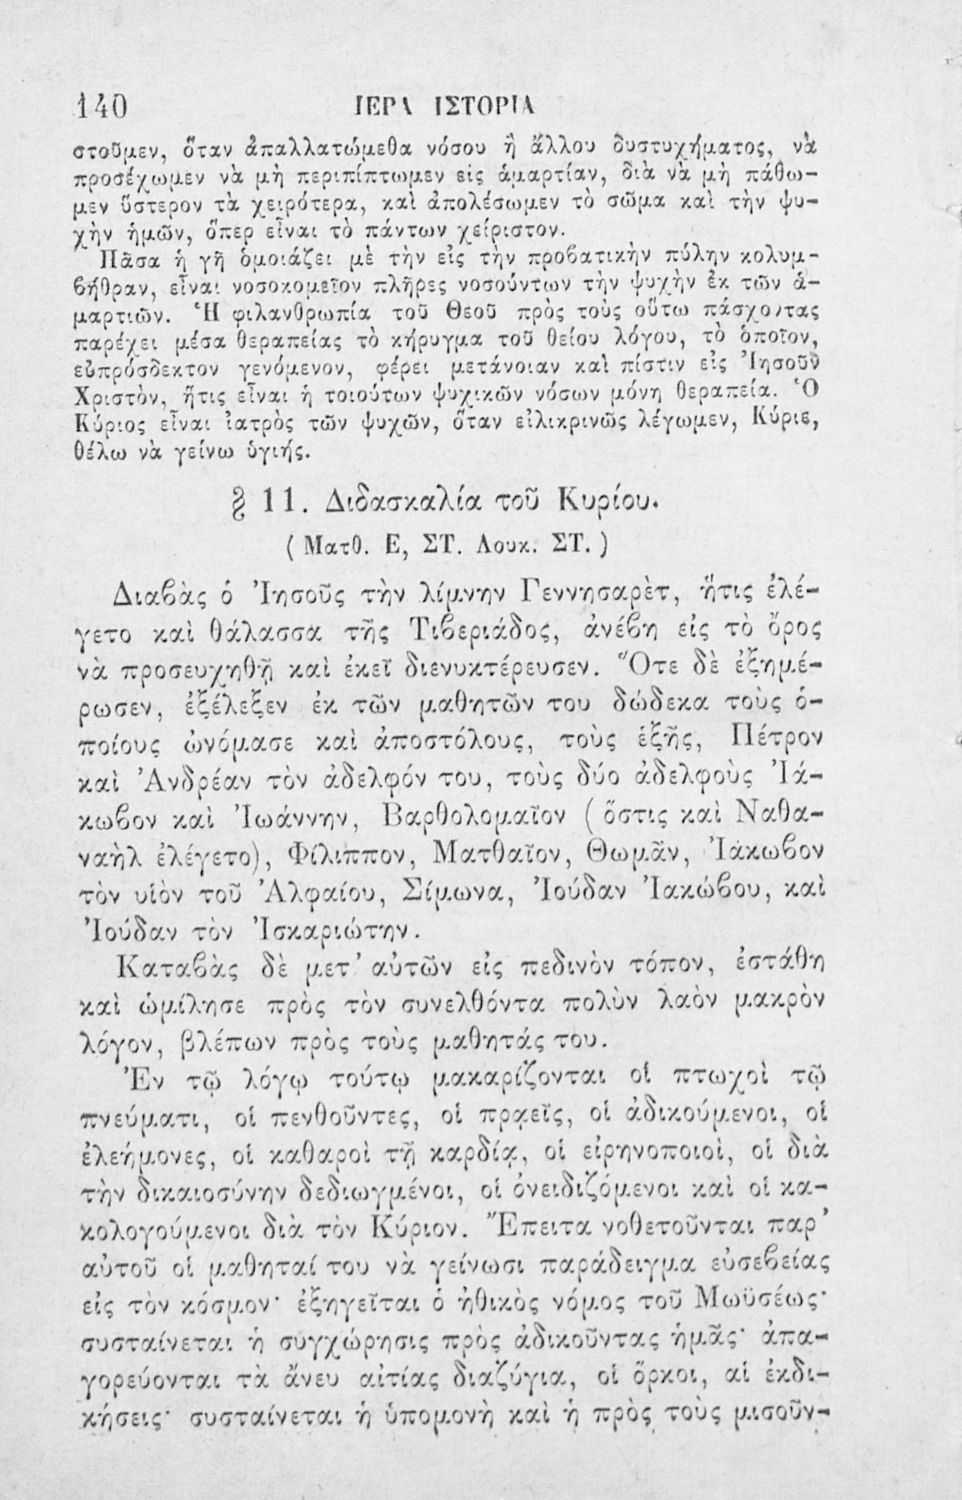 140 ΙΕΡΑ ΙΣΤΟΡΙΑ
στοῦμεν, ὅταν ἀπαλλατώμεθα νόσου ἢ ἄλλου δυστυχήματος, νὰ
προσέχωμεν νὰ μὴ περιπίπτωμεν εἰς ἁμαρτίαν, διὰ νὰ μὴ πάθω-
μεν ὕστερον τὰ χειρότερα, καὶ ἀπολέσωμεν τὸ σῶμα καὶ τὴν ψυ-
χὴν ἡμῶν, ὅπερ εἶναι τὸ πάντων χείριστον.
Πᾶσα ἡ γῆ ὁμοιάζει μὲ τὴν εἰς τὴν προβατικὴν πύλην κολυμ-
βήθραν, εἶναι νοσοκομεῖον πλῆρες νοσούντων τὴν ψυχὴν ἐκ τῶν ἁ-
μαρτιῶν. Ἡ φιλανθρωπία τοῦ Θεοῦ πρὸς τοὺς οὕτω πάσχοντας
παρέχει μέσα θεραπείας τὸ κήρυγμα τοῦ θείου λόγου, τὸ ὁποῖον,
εὐπρόσδεκτον γενόμενον, φέρει μετάνοιαν καὶ πίστιν εἰς Ἰησοῦν
Χριστὸν, ἥτις εἶναι ἡ τοιούτων ψυχικῶν νόσων μόνη θεραπεία. Ὁ
Κύριος εἶναι ἰατρὸς τῶν ψυχῶν, ὅταν εἰλικρινῶς λέγωμεν, Κύριε,
θέλω νὰ γείνω ὑγιής.
§ 11. Διδασκαλία τοῦ Κυρίου.
( Ματθ. Ε, ΣΤ. Λουκ. ΣΤ. )
Διαβὰς ὁ Ἰησοῦς τὴν λίμνην Γεννησαρὲτ, ἥτις ἐλέ-
γετο καὶ θάλασσα τῆς Τιβεριάδος, ἀνέβη εἰς τὸ ὄρος
νὰ προσευχηθῇ καὶ ἐκεῖ διενυκτέρευσεν. Ὅτε δὲ ἐξημέ-
ρωσεν, ἐξέλεξεν ἐκ τῶν μαθητῶν του δώδεκα τοὺς ὁ-
ποίους ὠνόμασε καὶ ἀποστόλους, τοὺς ἑξῆς, Πέτρον
καὶ Ἀνδρέαν τὸν ἀδελφόν του, τοὺς δύο ἀδελφοὺς Ἰά-
κωβον καὶ Ἰωάννην, Βαρθολομαῖον ( ὅστις καὶ Ναθα-
ναὴλ ἐλέγετο), Φίλιππον, Ματθαῖον, Θωμᾶν, Ἰάκωβον
τὸν υἱὸν τοῦ Ἀλφαίου, Σίμωνα, Ἰούδαν Ἰακώβου, καὶ
Ἰούδαν τὸν Ἰσκαριώτην.
Καταβὰς δὲ μετ' αὐτῶν εἰς πεδινὸν τόπον, ἐστάθη
καὶ ὡμίλησε πρὸς τὸν συνελθόντα πολὺν λαὸν μακρὸν
λόγον, βλέπων πρὸς τοὺς μαθητάς του.
Ἐν τῷ λόγῳ τούτῳ μακαρίζονται οἱ πτωχοὶ τῷ
πνεύματι, οἱ πενθοῦντες, οἱ πρᾳεῖς, οἱ ἀδικούμενοι, οἱ
ἐλεήμονες, οἱ καθαροὶ τῇ καρδίᾳ, οἱ εἰρηνοποιοὶ, οἱ διὰ
τὴν δικαιοσύνην δεδιωγμένοι, οἱ ὀνειδιζόμενοι καὶ οἱ κα-
κολογούμενοι διὰ τὸν Κύριον. Ἔπειτα νοθετοῦνται παρ'
αὐτοῦ οἱ μαθηταί του νὰ γείνωσι παράδειγμα εὐσεβείας
εἰς τὸν κόσμον· ἐξηγεῖται ὁ ἠθικὸς νόμος τοῦ Μωϋσέως·
συσταίνεται ἡ συγχώρησις πρὸς ἀδικοῦντας ἡμᾶς· ἀπα-
γορεύονται τὰ ἄνευ αἰτίας διαζύγια, οἱ ὅρκοι, αἱ ἐκδι-
κήσεις· συσταίνεται ἡ ὑπομονὴ καὶ ἡ πρὸς τοὺς μισοῦν-